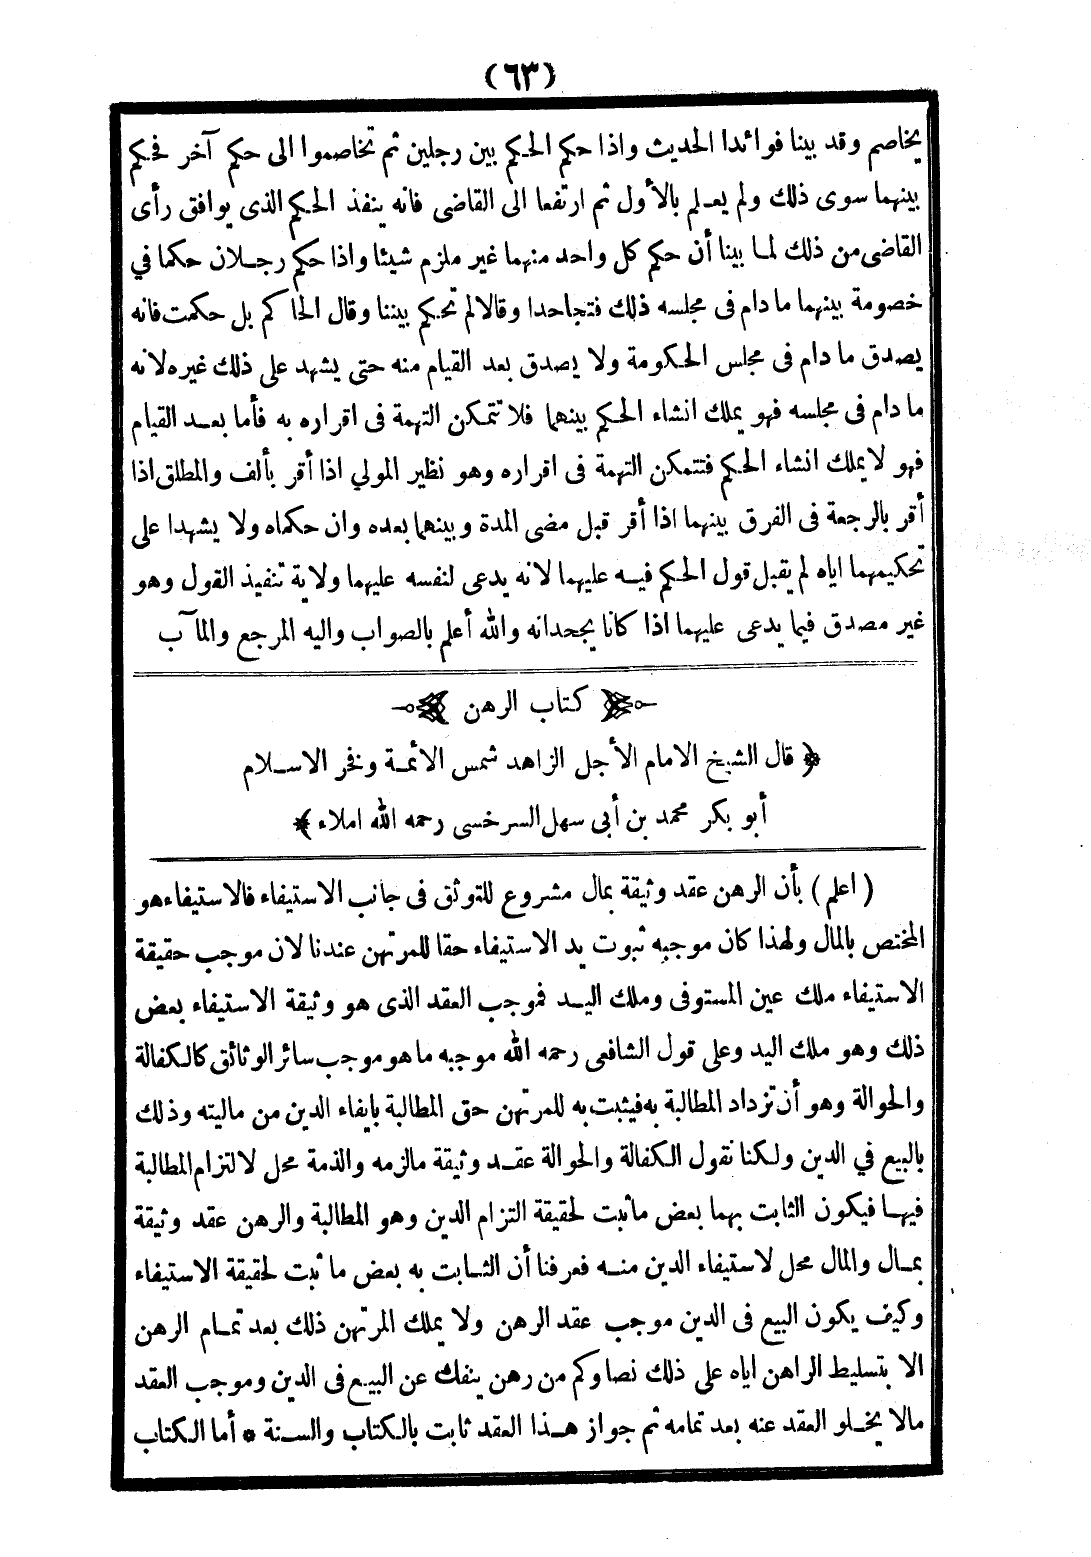 (٦٣)
يخاصم وقد بينا فوائد الحديث واذا حكم الحكم بين رجلين ثم تخاصموا الى حكم آخر فحكم
بينهما سوى ذلك ولم يعلم بالأول ثم ارتفعا الى القاضى فانه ينفذ الحكم الذى يوافق رأى
القاضى من ذلك لما بينا أن حكم كل واحد منهما غير ملزم شيئا واذا حكم رجلان حكما في
خصومة بينهما ما دام فى مجلسه ذلك فتجاحدا وقالا لم تحكم بيننا وقال الحاكم بل حكمت فانه
يصدق ما دام فى مجلس الحكومة ولا يصدق بعد القيام منه حتى يشهد على ذلك غيره لانه
ما دام فى مجلسه فهو يملك انشاء الحكم بينهما فلا تتمكن التهمة فى اقراره به فأما بعد القيام
فهو لا يملك انشاء الحكم فتتمكن التهمة فى اقراره وهو نظير المولي اذا أقر بألف والمطلق اذا
أقر بالرجعة فى الفرق بينهما اذا أقر قبل مضى المدة وبينهما بعده وان حكماه ولا يشهدا على
تحكيمهما اياه لم يقبل قول الحكم فيه عليهما لانه يدعى لنفسه عليهما ولاية تنفيذ القول وهو
غير مصدق فيما يدعى عليهما اذا كانا يجحدانه والله أعلم بالصواب واليه المرجع والمآب
كتاب الرهن
﴿ قال الشيخ الامام الأجل الزاهد شمس الائمة وفخر الاسلام
أبو بكر محمد بن أبى سهل السرخسى رحمه الله املاء ﴾
(اعلم) بأن الرهن عقد وثيقة بمال مشروع للتوثق فى جانب الاستيفاء فالاستيفاء هو
المختص بالمال ولهذا كان موجبه ثبوت يد الاستيفاء حقا للمرتهن عندنا لان موجب حقيقة
الاستيفاء ملك عين المستوفى وملك اليد فموجب العقد الذى هو وثيقة الاستيفاء بعض
ذلك وهو ملك اليد وعلى قول الشافعى رحمه الله موجبه ما هو موجب سائر الوثائق كالكفالة
والحوالة وهو أن تزداد المطالبة به فيثبت به للمرتهن حق المطالبة بايفاء الدين من ماليته وذلك
بالبيع في الدين ولكنا نقول الكفالة والحوالة عقد وثيقة مالزمه والذمة محل لالتزام المطالبة
فيها فيكون الثابت بهما بعض ماثبت لحقيقة التزام الدين وهو المطالبة والرهن عقد وثيقة
بمال والمال محل لاستيفاء الدين منه فعرفنا أن الثابت به بعض ما ثبت لحقيقة الاستيفاء
وكيف يكون البيع فى الدين موجب عقد الرهن ولا يملك المرتهن ذلك بعد تمام الرهن
الا بتسليط الراهن اياه على ذلك نصا وكم من رهن ينفك عن البيع فى الدين وموجب العقد
مالا يخلو العقد عنه بعد تمامه ثم جواز هذا العقد ثابت بالكتاب والسنة * أما الكتاب